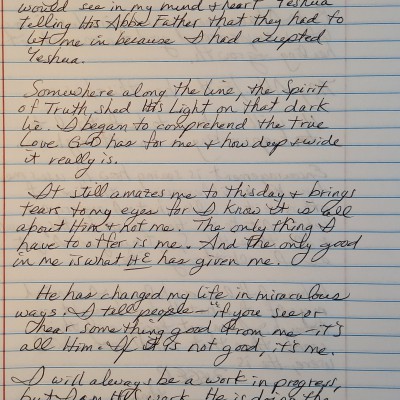 would see in my mind & heart Yeshua
telling His Abba Father that they had to
let me in because I had accepted
Yeshua.
Somewhere along the line, the Spirit
of Truth shed His Light on that dark
lie. I began to comprehend the True
Love G-D has for me & how deep & wide
it really is.
It still amazes me to this day & brings
tears to my eyes for I know it is all
about Him & not me. The only thing I
have to offer is me. And the only good
in me is what HE has given me.
He has changed my life in miraculous
ways. I tell people - "if you see or
hear something good from me - it's
all Him. If it is not good, it's me.
I will always be a work in progress,
but I am His work. He is doing the